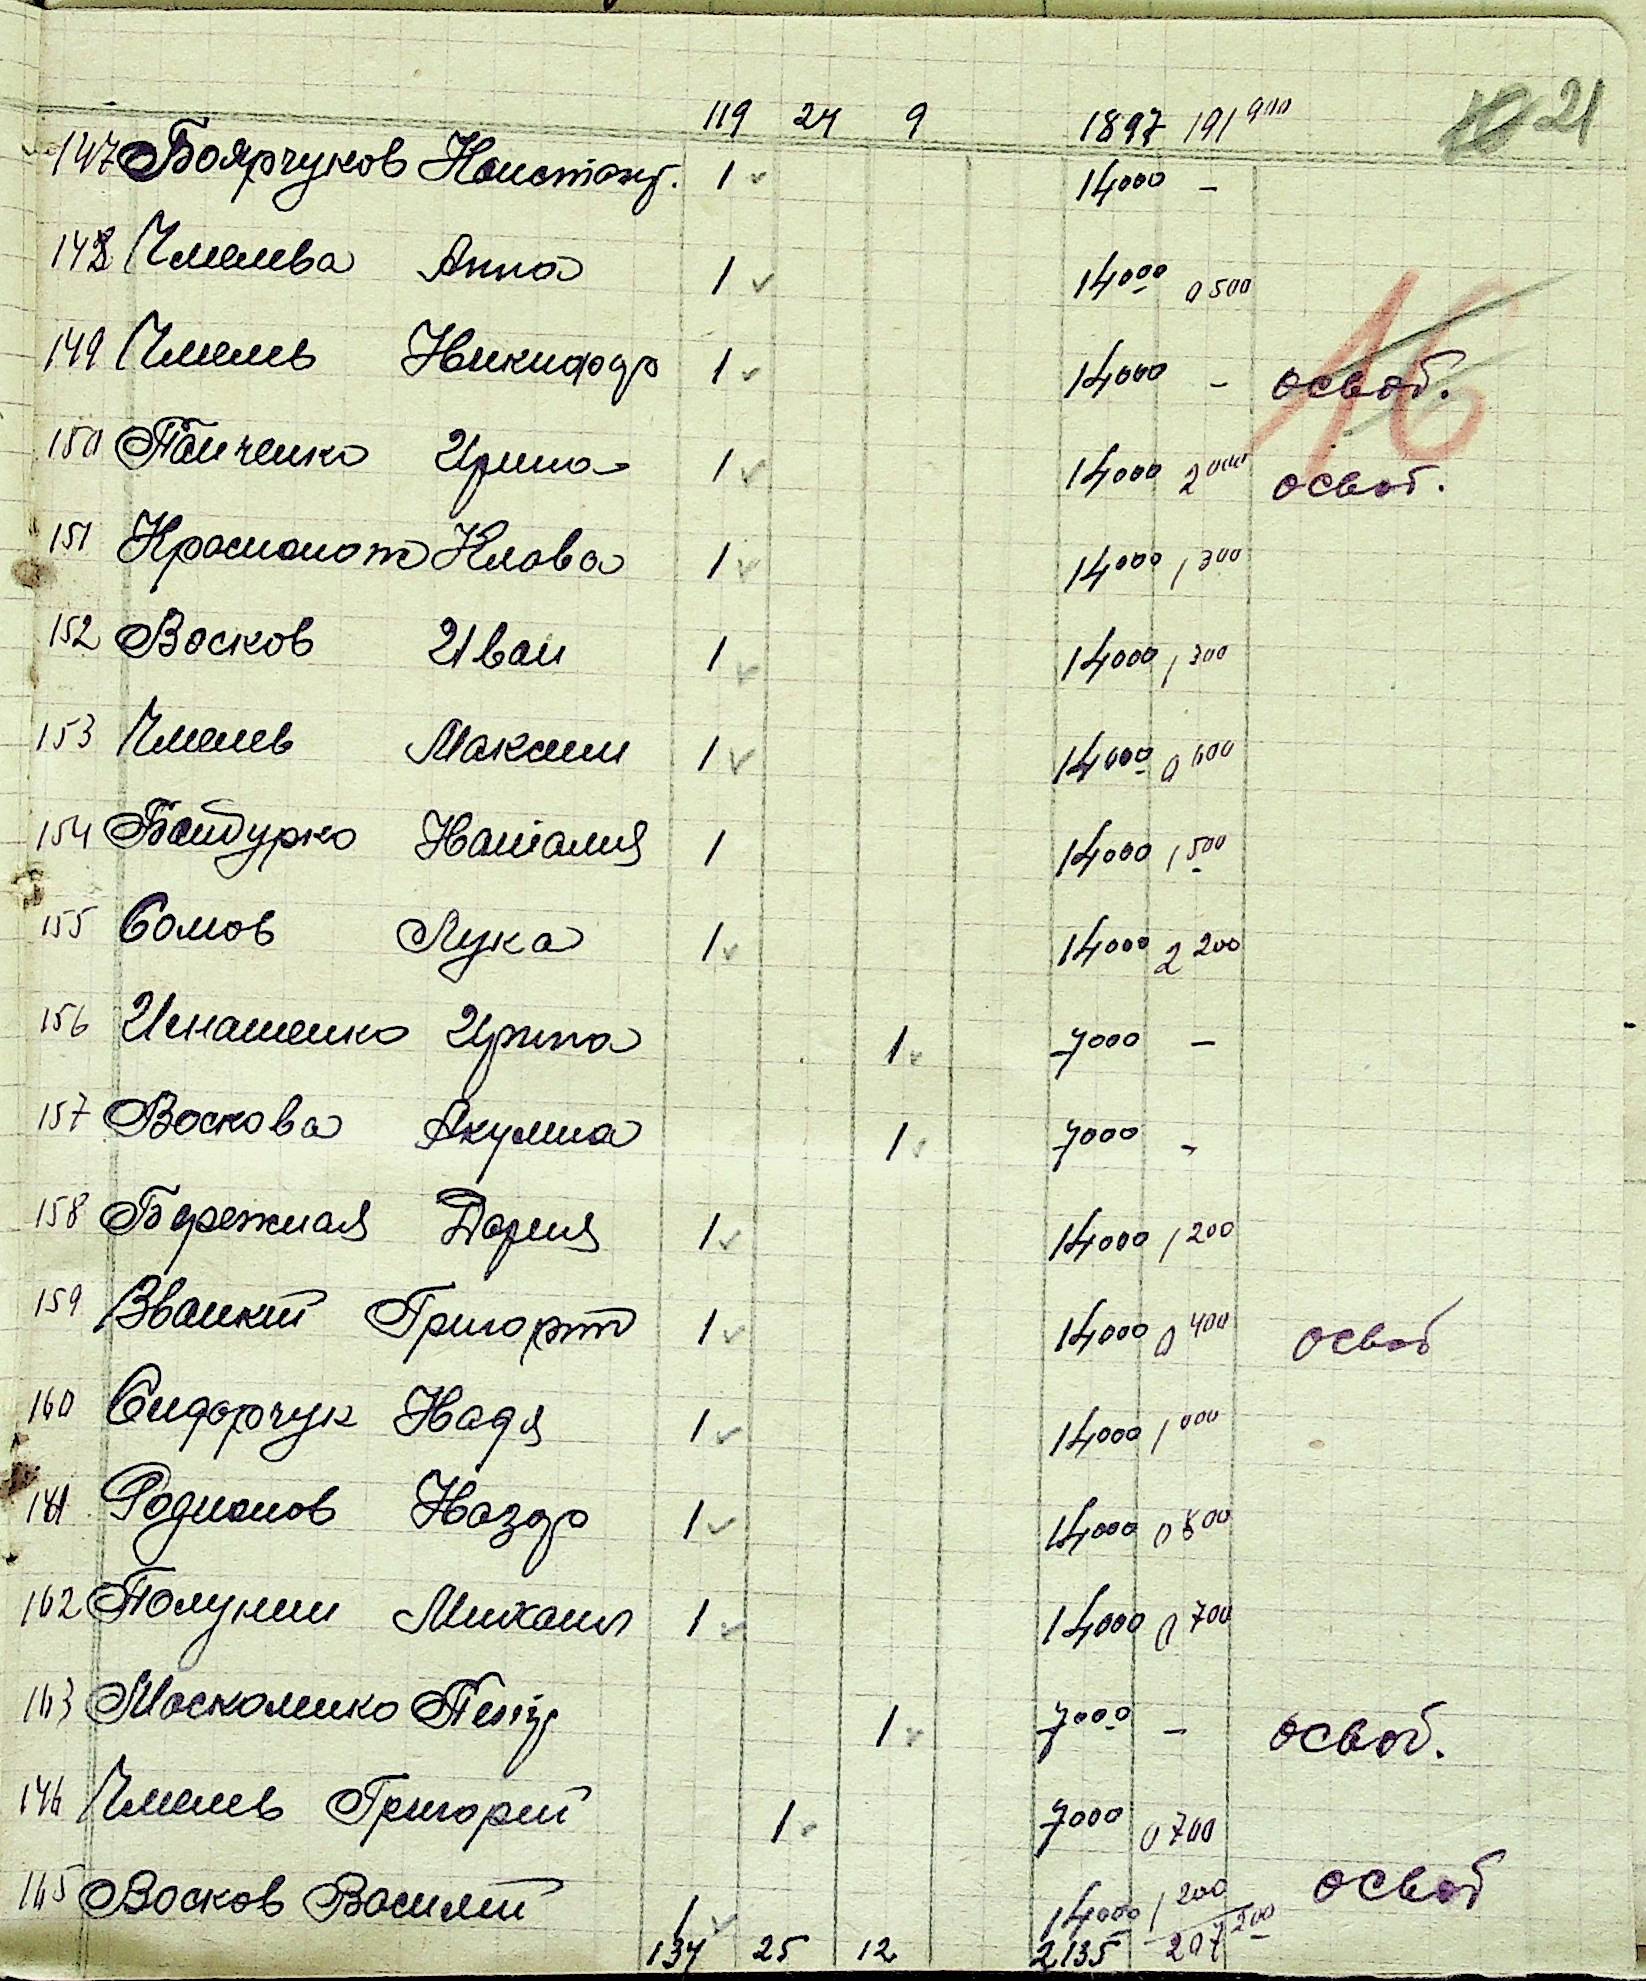 119 24 9 1897 191 900 21
147 Боярчуков Констант. 1 14000 -
148 Чмелева Анна 1 14000 0 500
149 Чмелев Никифор 1 14000 - освоб.
150 Панченко Ирина 1 14000 2 000 освоб.
151 Красионот Клава 1 14000 1 300
152 Восков Иван 1 14000 1 300
153 Чмелев Максим 1 14000 0 600
154 Байдурко Наталия 1 14000 1 500
155 Сомов Лука 1 14000 2 200
156 Игнашенко Ирина 1 7000 -
157 Воскова Акулина 1 7000 -
158 Бережная Дария 1 14000 1 200
159 Званкий Григорий 1 14000 0 400 освоб
160 Сидорчук Надя 1 14000 1 000
161 Родионов Назар 1 14000 0 800
162 Полунин Михаил 1 14000 0 700
163 Москоленко Петр 1 7000 - освоб.
146 Чмелев Григорий 1 7000 0 700
165 Восков Василий 1 14000 1 200 освоб
134 25 12 2135 207 200
16